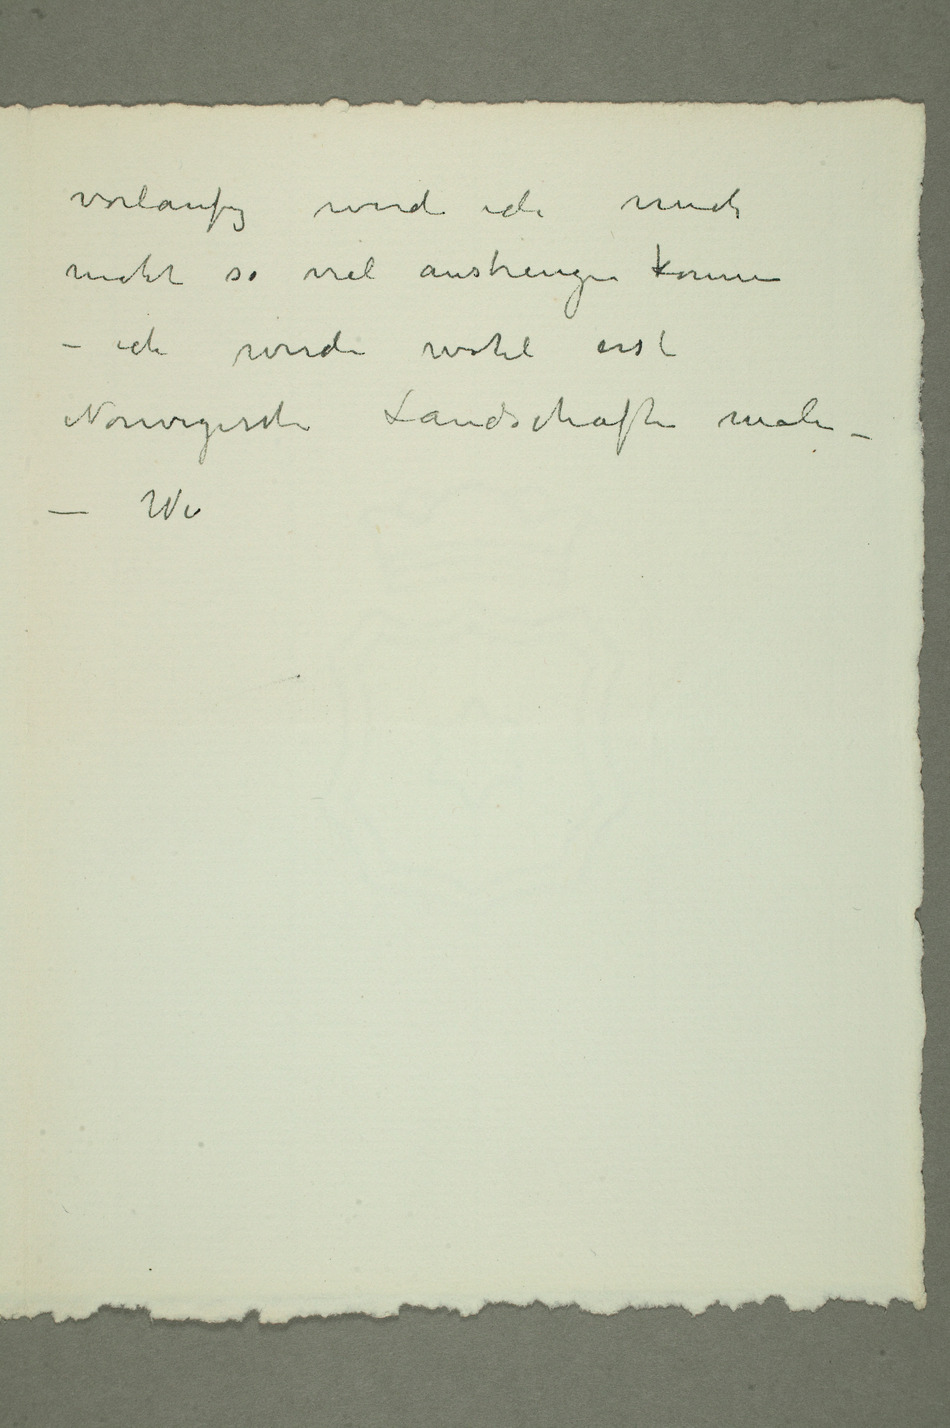 vorlaufig werde ich mich
nicht so viel anstrengen konnen
– ich werde wohl erst
Norwegische Landschaften malen –
— Wi